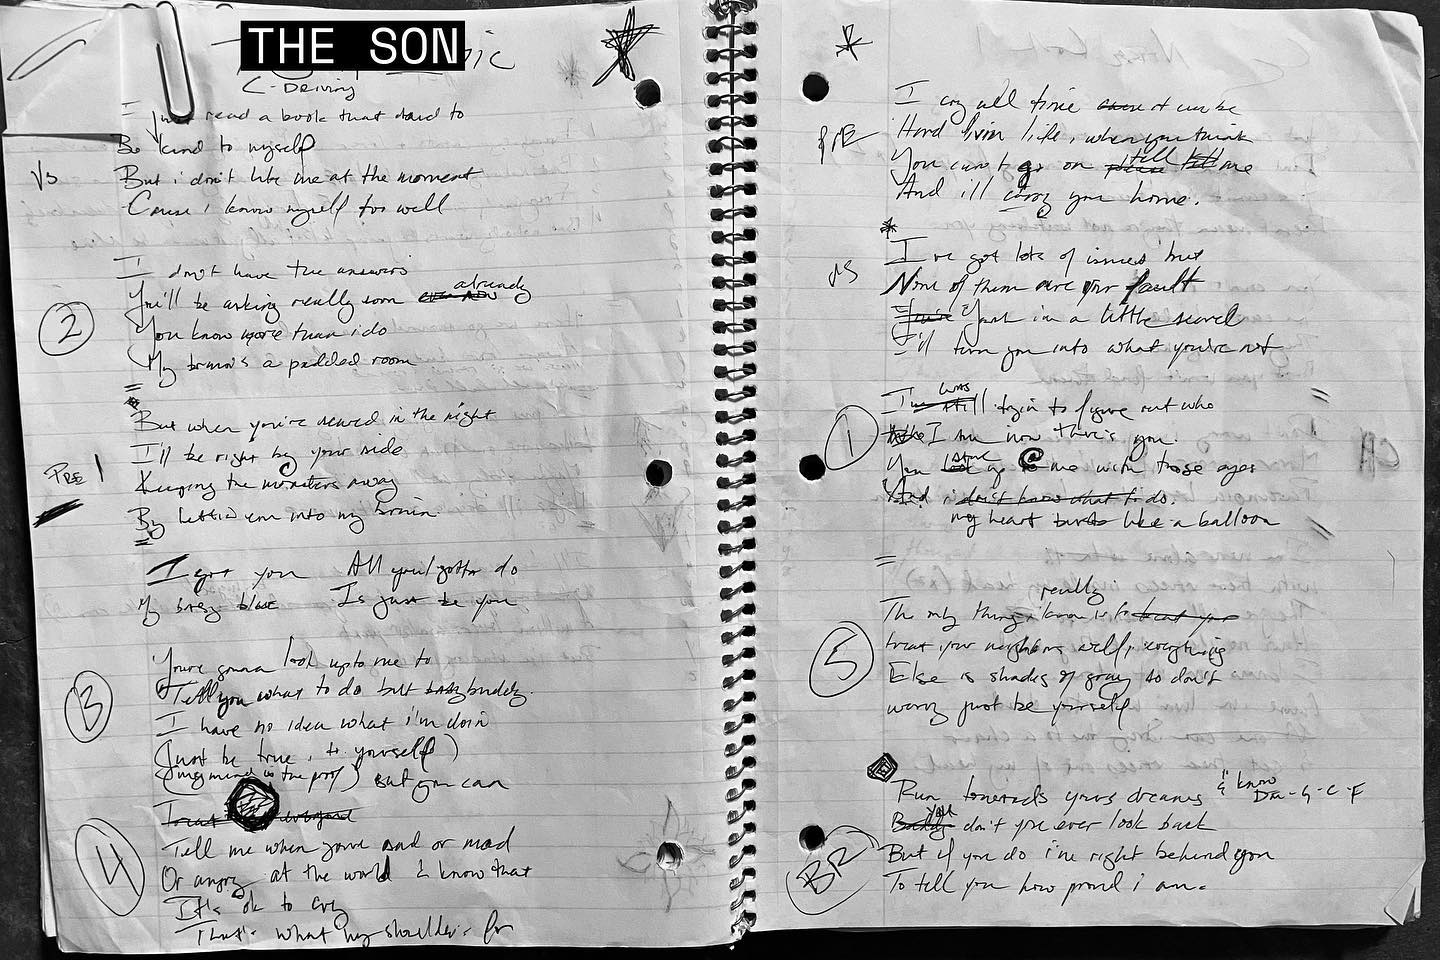 THE SON
C - Driving
I just read a book that said to
Be kind to myself
Vs
But i don't like me at the moment
Cause i know myself too well
I don't have the answers
You'll be asking really soon already
2
You know more than i do
My brain's a padded room
But when you're scared in the night
I'll be right by your side
PRE 1
Keeping the monsters away
By lettin em into my brain.
I got you All you gotta do
My baby blue Is just be you
You're gonna look up to me to
Tell you what to do but buddy
3
I have no idea what i'm doin
(Just be true, to yourself)
(my mind is the proof) But you can
4
Tell me when you're sad or mad
Or angry at the world & know that
It's ok to cry
That's what my shoulder's for
I cry all time cause it can be
PRE
Hard livin life, when you think
You can't go on please tell me
And i'll carry you home.
I've got lots of issues but
VS
None of them are your fault
Yeah i'm a little scared
I'll turn you into what you're not
I was still tryin to figure out who
1
I am now there's you.
You look up @ me with those eyes
And i don't know what to do.
my heart bursts like a balloon
really
The only thing i know is to treat your
treat your neighbors well, everything
5
Else is shades of gray so don't
worry just be yourself
Run towards your dreams & know
Dm - G - C - F
Buddy you don't you ever look back
BR
But if you do i'm right behind you
To tell you how proud i am.